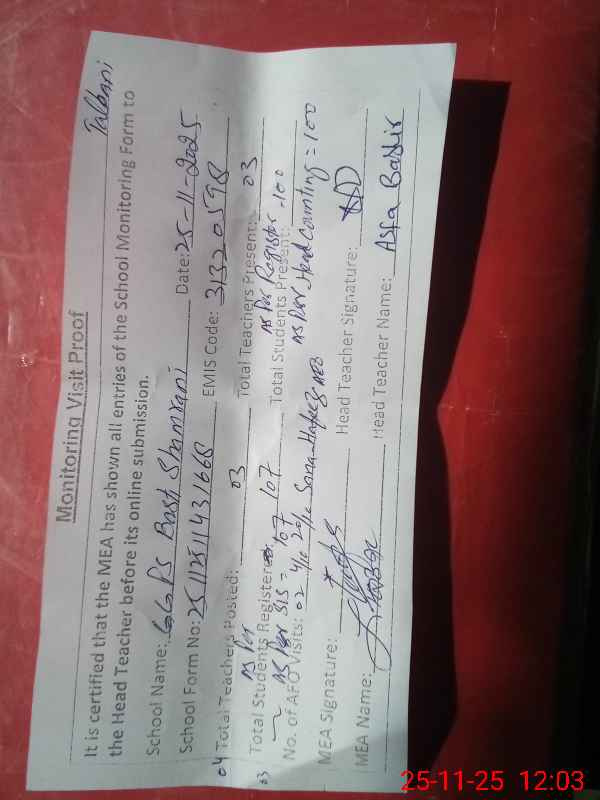 Monitoring Visit Proof
Talbani
It is certified that the MEA has shown all entries of the School Monitoring Form to
the Head Teacher before its online submission.
School Name: GGPS Basti Shamrani Date: 25-11-2025
School Form No: 251125114131668 EMIS Code: 31320598
04 Total Teachers Posted: 03 Total Teachers Present: 03
As Per As Per Register = 100
03 Total Students Registered: 107 Total Students Present:
As Per SIS = 107 As Per Head Counting = 100
No. of AFO Visits: 02 4/10 29/10 Sana Hafeez AEO
MEA Signature: Head Teacher Signature:
MEA Name: Head Teacher Name: Asfa Bashir
25-11-25 12:03